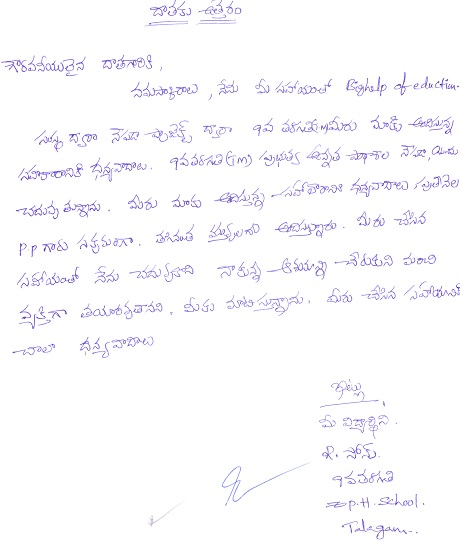 దాతకు ఉత్తరం
గౌరవనీయులైన దాతగారికి,
నమస్కారాలు, నేను మీ సహాయంతో Bighelp of eduction.
సంస్థ ద్వారా నేపదా ప్రాజెక్ట్ ద్వారా 9వ తరగతి(m)మీరు మాకు అందిస్తున్న
సహకారానికి ధన్యవాదాలు. 9వతరగతి(Tm) ప్రభుత్వ ఉన్నత పాఠశాల
చదువు తున్నాను. మీరు మాకు అందిస్తున్న సహకారానికి ధన్యవాదాలు ప్రతినెల
P.P గారు సక్రమంగా. తగినంత వస్తువులను అందిస్తున్నారు. మీరు చేసిన
సహాయంతో నేను చదువుకొని నాకున్న ఆశయాన్ని చేరుకుని మంచి
వ్యక్తిగా తయారవుతానని. మీకు మాటిస్తున్నాను. మీరు చేసిన సహాయానికి
చాలా ధన్యవాదాలు
ఇట్లు
మీ విద్యార్థిని.
9వతరగతి
z.p.H. School.
Talegaon.